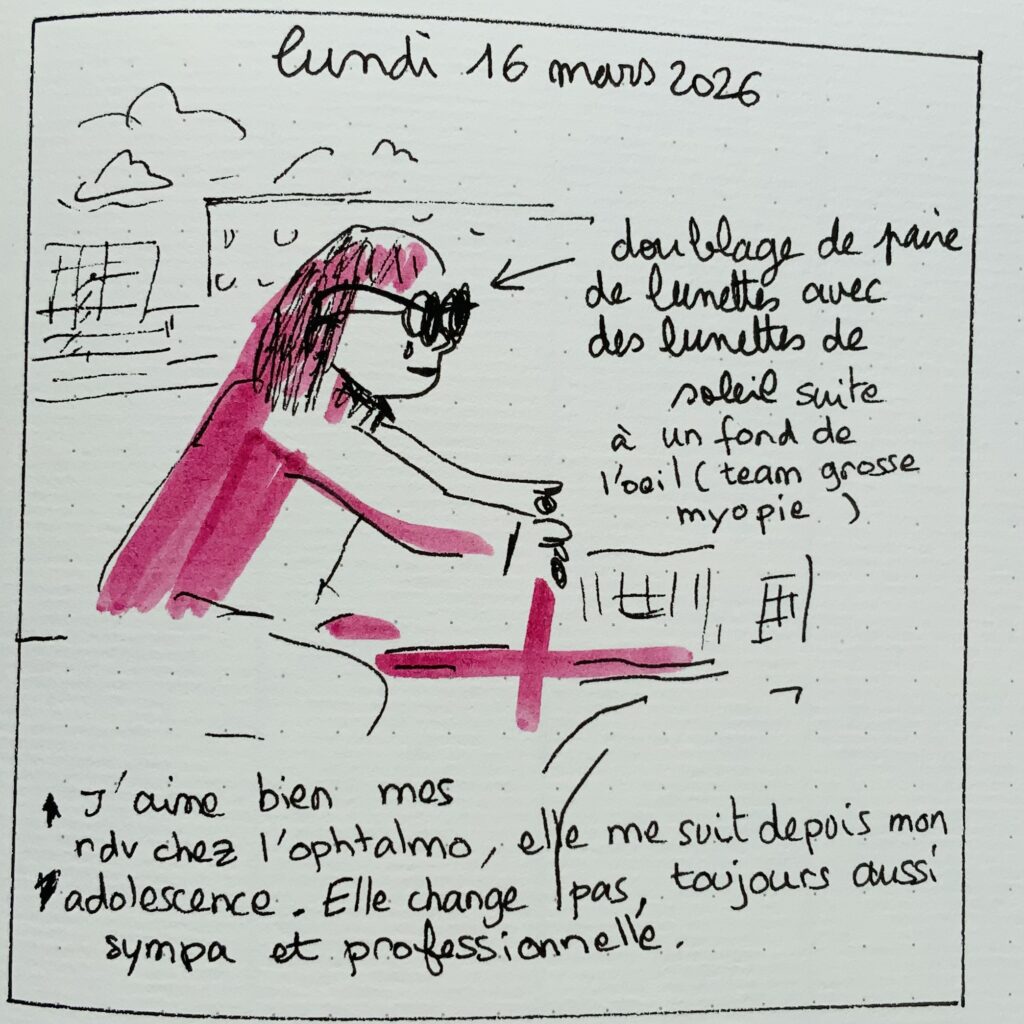 lundi 16 mars 2026
doublage de paire
de lunettes avec
des lunettes de
soleil suite
à un fond de
l'oeil (team grosse
myopie )
J'aime bien mes
rdv chez l'ophtalmo, elle me suit depuis mon
adolescence. Elle change pas, toujours aussi
sympa et professionnelle.